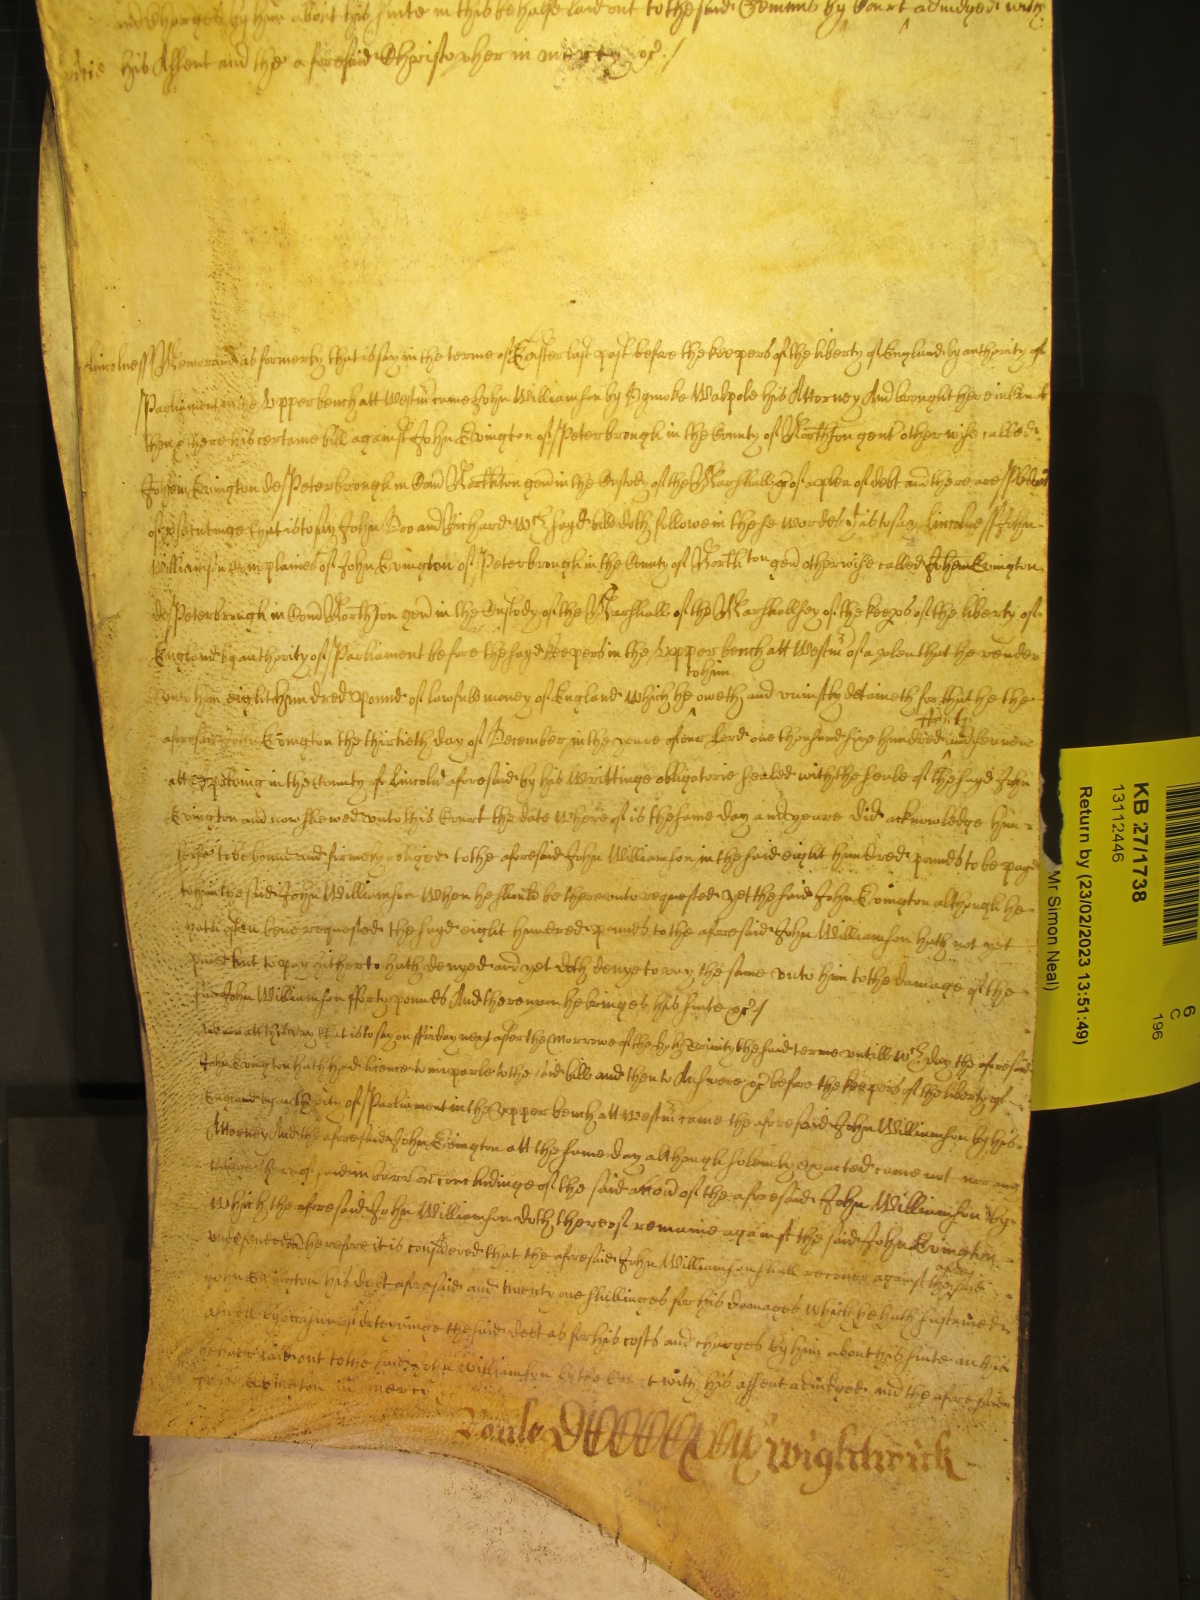 and Charges by him about his suite in this behalfe laid out to the said Clement by Court adiudged with
his Assent and the aforesaid Christopher in mercy &c /
Lincolne ss Memorand as formerly that is to say in the terme of Easter last past before the keepers of the liberty of England by authority of
Parliament in the Upper bench att Westm came John Williamson by Walpole his Attorney And brought here in the Court
then there his certaine bill against John Evington of Peterbrough in the County of Northton gent otherwise called
Evington de Peterbrough in Com Northton gen in the Custody of the Marshall &c of a plea of debt and there are pledges
of prosecutinge that is to say John Doo and Richard wch sayd bill doth followe in these wordes is to say Lincolne ss John
Williamson complaines of John Evington of Peterbrough in the County of Northton gen otherwise called Evington
de Peterbrough in Com Northton gen in the Custody of the Marshall of the Marshallsey of the keeps of the liberty of
England by authority of Parliament before the sayd keepers in the upper bench att Westm of a plea that he render
unto him eight hundred pound of lawfull money of England which he to him oweth and uniustly detaineth for that he the
aforesaid John Evington the thirtieth day of December in the yeare of our Lord one thousand six hundred and
att in the County of Lincoln aforesaid by his writtinge obligatorie sealed with the seale of the sayd John
Evington and now shewed unto this Court the date whereof is the same day and yeare did acknowledge him
selfe to be bound and firmely to the aforesaid John Williamson in the said eight hundred pounds to be payd
to him the said John Williamson when he should be thereunto requested yet the said John Evington although he
hath often bene requested the sayd eight hundred pounds to the aforesaid John Williamson hath not yet
paid but to pay hitherto hath denyed and yet doth denye to pay the same unto him to the damage of the
said John Williamson fforty pounds And thereupon he bringes his suite &c /
att this day that is to say on ffriday next after the Morrowe of the holy Trinity the said terme untill wch day the aforesaid
John Evington hath had licence to imparle to the said bill and then to Answere &c before the keepers of the liberty of
England by authority of Parliament in the Upper bench att Westm came the aforesaid John Williamson by his
Attorney And the aforesaid John Evington att the same day although solemly exacted came not nor any
said in barr or concludinge of the said accon of the aforesaid John Williamson by
which the aforesaid John Williamson doth thereof remaine against the said John Evington
undefended Therefore it is considered that the aforesaid John Williamson shall recover against the said
John Evington his debt aforesaid and twenty one shillinges for his damages which he hath sustained
aswell by occasion of deteyninge the said debt as for his costs and charges by him about his suite in this
behalfe laid out to the said John Williamson by the Court with his assent adiudged and the aforesaid
John Evington in mercy
Roule Wightwick
KB 27/1738
13112446
Return by (23/02/2023 13:51:49)
Mr Simon Neal)
6
C
196